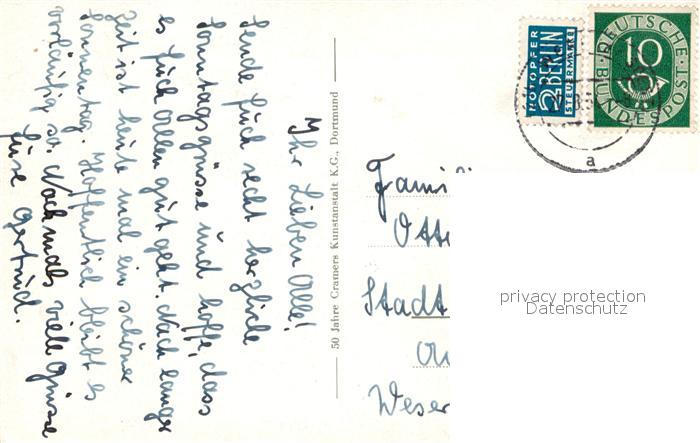 Ihr Lieben Alle!
Sende Euch recht herzliche
Sonntagsgrüsse und hoffe, dass
es Euch allen gut geht. Nach langer
Zeit ist heute mal ein schöner
Sonnentag. Hoffentlich bleibt es
vorläufig so. Nochmals viele Grüsse
Eure Gertrud.
50 Jahre Cramers Kunstanstalt K.G., Dortmund
NOTOPFER
2 BERLIN
STEUERMARKE
DEUTSCHE
10
BUNDESPOST
a
Famil
Otto
Stadt
Weser
privacy protection
Datenschutz